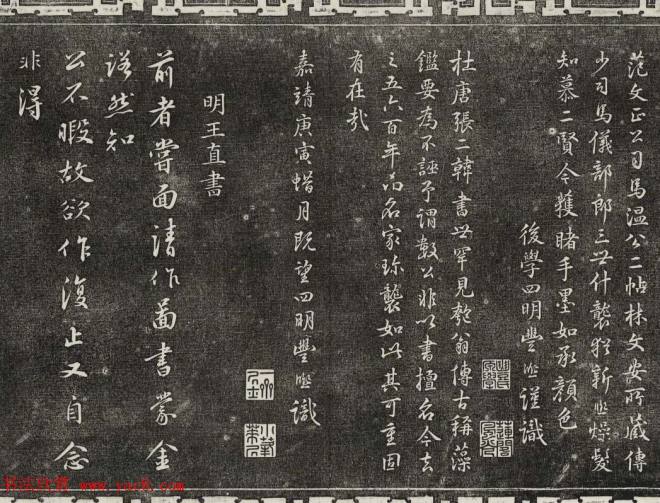 范文正公司馬溫公二帖林文安所藏傳
少司馬儀部郎三世什襲猶新熙燥髮
知慕二賢今獲睹手墨如承顏色
後學四明豐熙謹識
杜唐張二韓書世罕見匏翁傳古稱藻
鑑要為不誣予謂數公非以書擅名今去
之五六百年而名家珍襲如此其可重固
有在哉
嘉靖庚寅蜡月既望四明豐熙識
明王直書
前者嘗面請作啚書蒙金
諾然知
公不暇故欲作復止又自念
非得
www.yac8.com